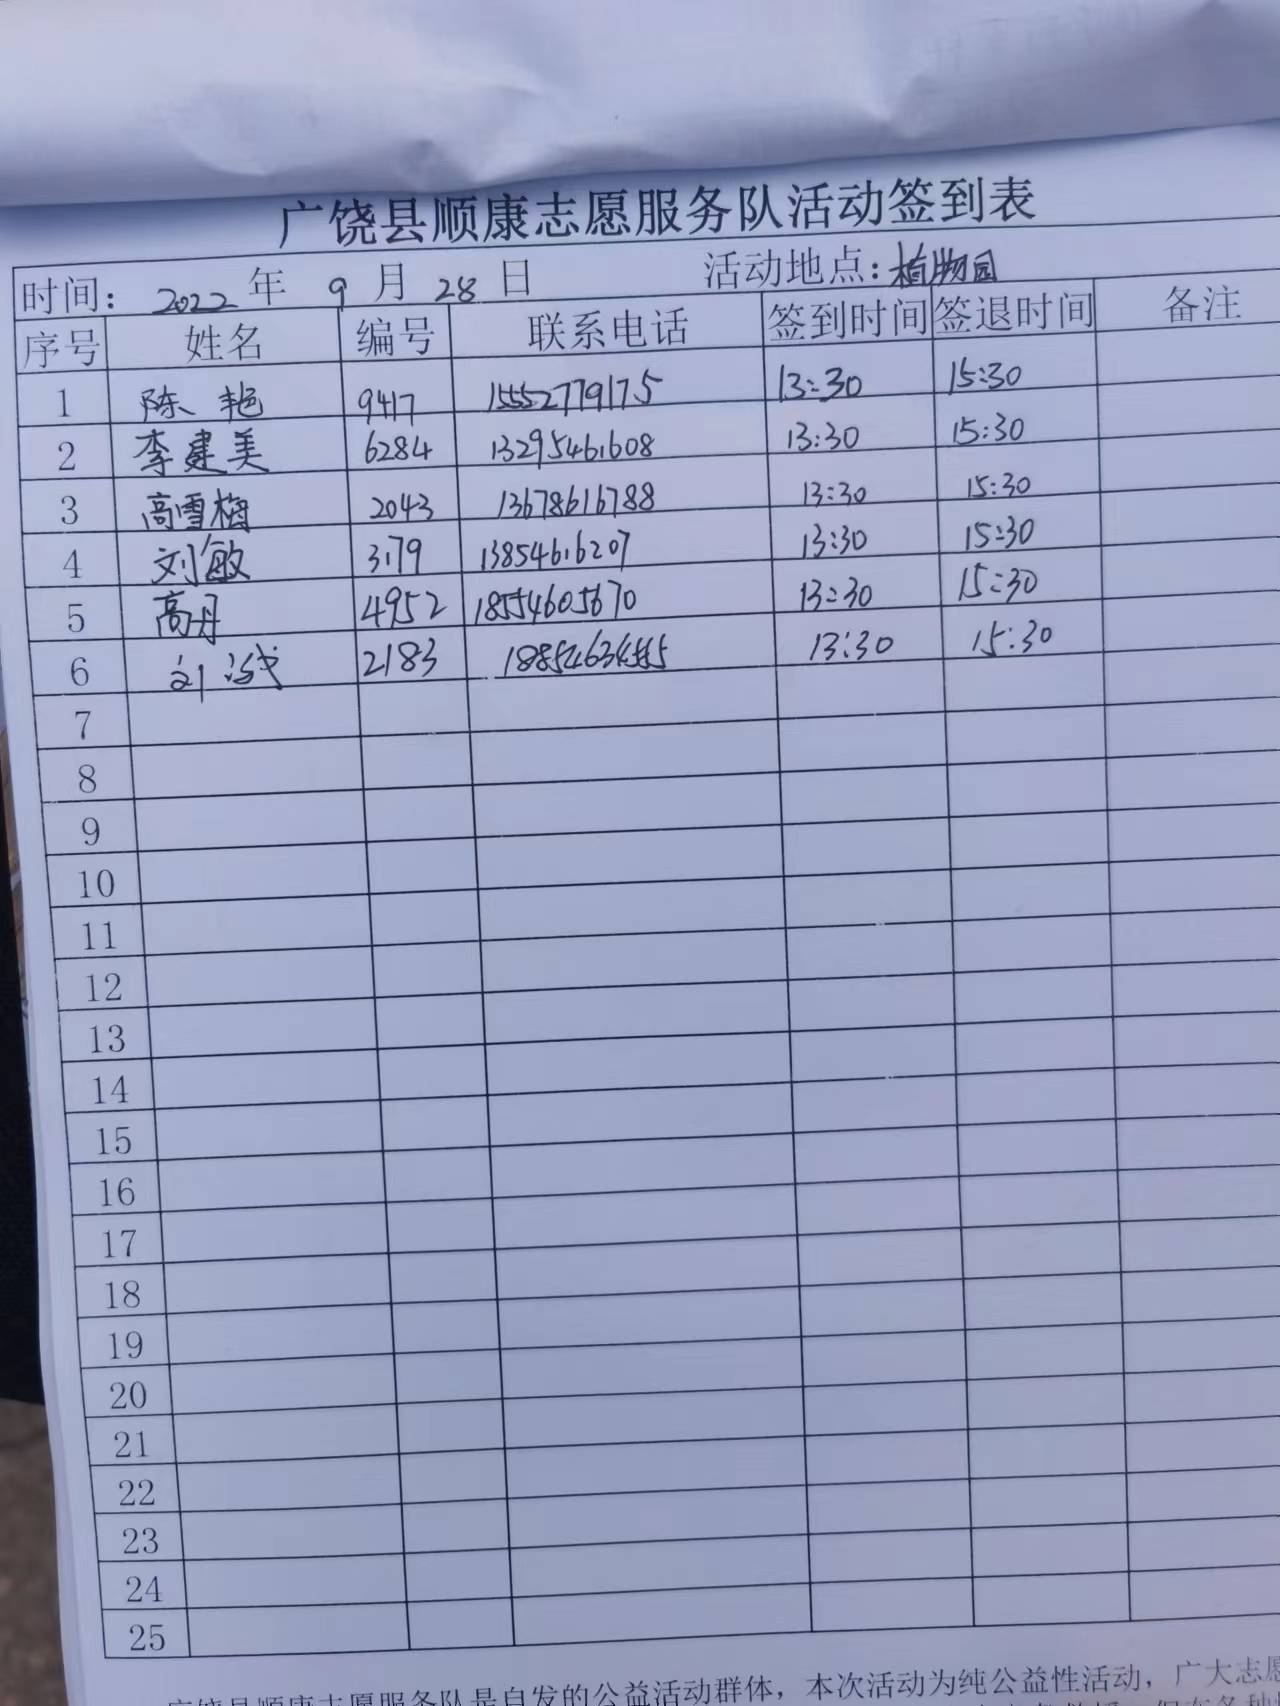 广饶县顺康志愿服务队活动签到表
时间: 2022 年 9 月 28 日 活动地点: 植物园
序号 姓名 编号 联系电话 签到时间 签退时间 备注
1 陈艳 9417 15552779175 13:30 15:30
2 李建美 6284 13295461608 13:30 15:30
3 高雪梅 2043 13678616788 13:30 15:30
4 刘敏 3179 13854616207 13:30 15:30
5 高丹 4952 18554605670 13:30 15:30
6 刘 2183 13:30 15:30
7
8
9
10
11
12
13
14
15
16
17
18
19
20
21
22
23
24
25
广饶县顺康志愿服务队是自发的公益活动群体，本次活动为纯公益性活动，广大志愿